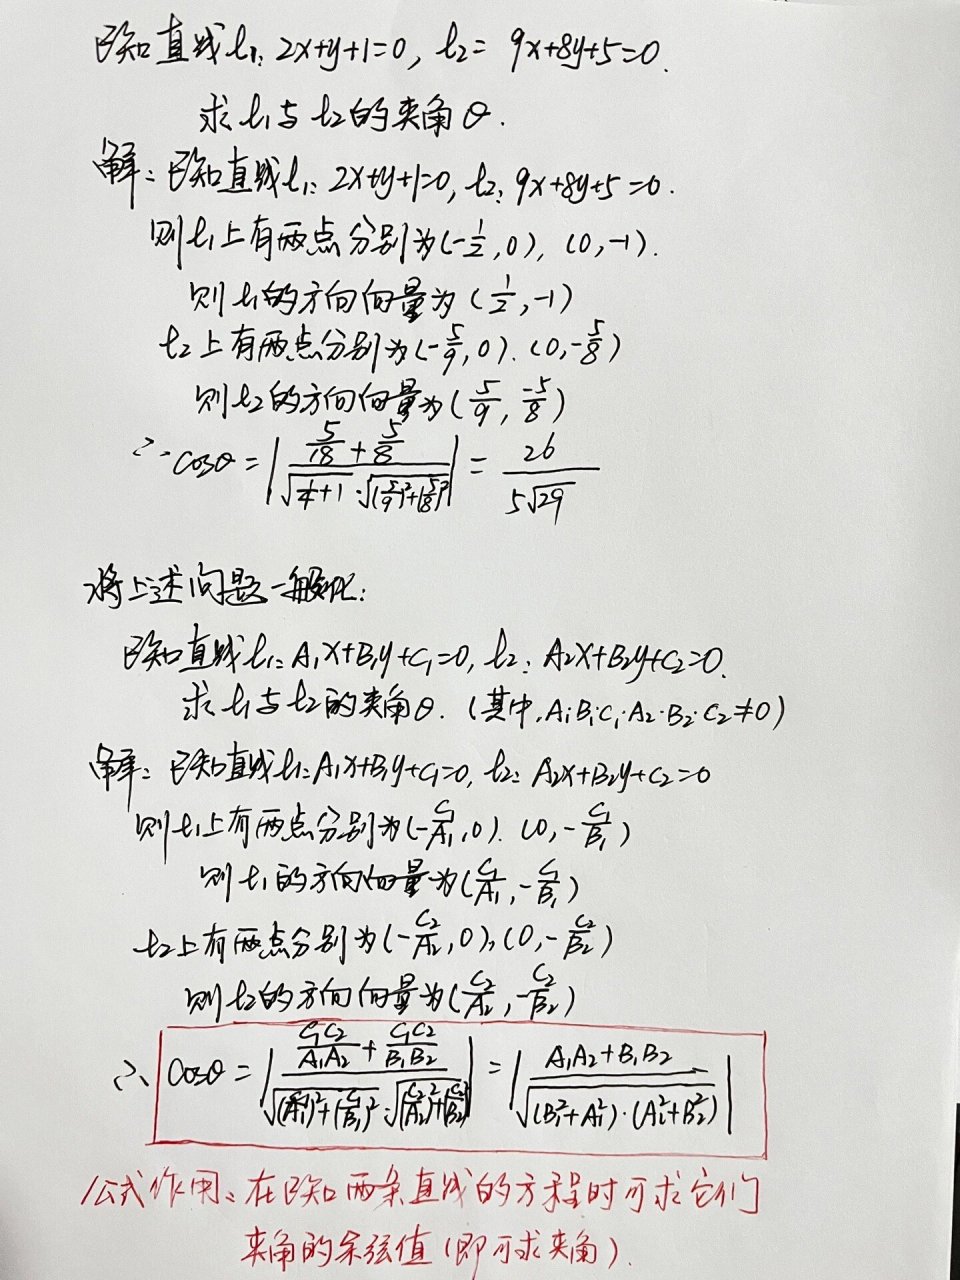 已知直线l₁: 2x+y+1=0, l₂= 9x+8y+5=0.
求l₁与l₂的夹角θ.
解: 已知直线l₁: 2x+y+1=0, l₂: 9x+8y+5=0.
则l₁上有两点分别为(-1/2,0), (0,-1).
则l₁的方向向量为(1/2,-1)
l₂上有两点分别为(-5/9,0). (0,-5/8)
则l₂的方向向量为(5/9, -5/8)
∴ cosθ = |(5/18 + 5/8)/(√(1/4+1)·√((5/9)²+(5/8)²))| = 26/(5√29)
将上述问题一般化:
已知直线l₁: A₁x+B₁y+C₁=0, l₂: A₂x+B₂y+C₂=0.
求l₁与l₂的夹角θ. (其中,A₁·B₁·C₁·A₂·B₂·C₂≠0)
解: 已知直线l₁: A₁x+B₁y+C₁=0, l₂: A₂x+B₂y+C₂=0
则l₁上有两点分别为(-C₁/A₁,0). (0,-C₁/B₁)
则l₁的方向向量为(C₁/A₁,-C₁/B₁)
l₂上有两点分别为(-C₂/A₂,0), (0,-C₂/B₂)
则l₂的方向向量为(C₂/A₂,-C₂/B₂)
∴ cosθ = |(C₁C₂/A₁A₂ + C₁C₂/B₁B₂)/(√((C₁/A₁)²+(C₁/B₁)²)·√((C₂/A₂)²+(C₂/B₂)²))| = |(A₁A₂+B₁B₂)/√((B₁²+A₁²)·(A₂²+B₂²))|
公式作用: 在已知两条直线的方程时可求它们
夹角的余弦值(即可求夹角).